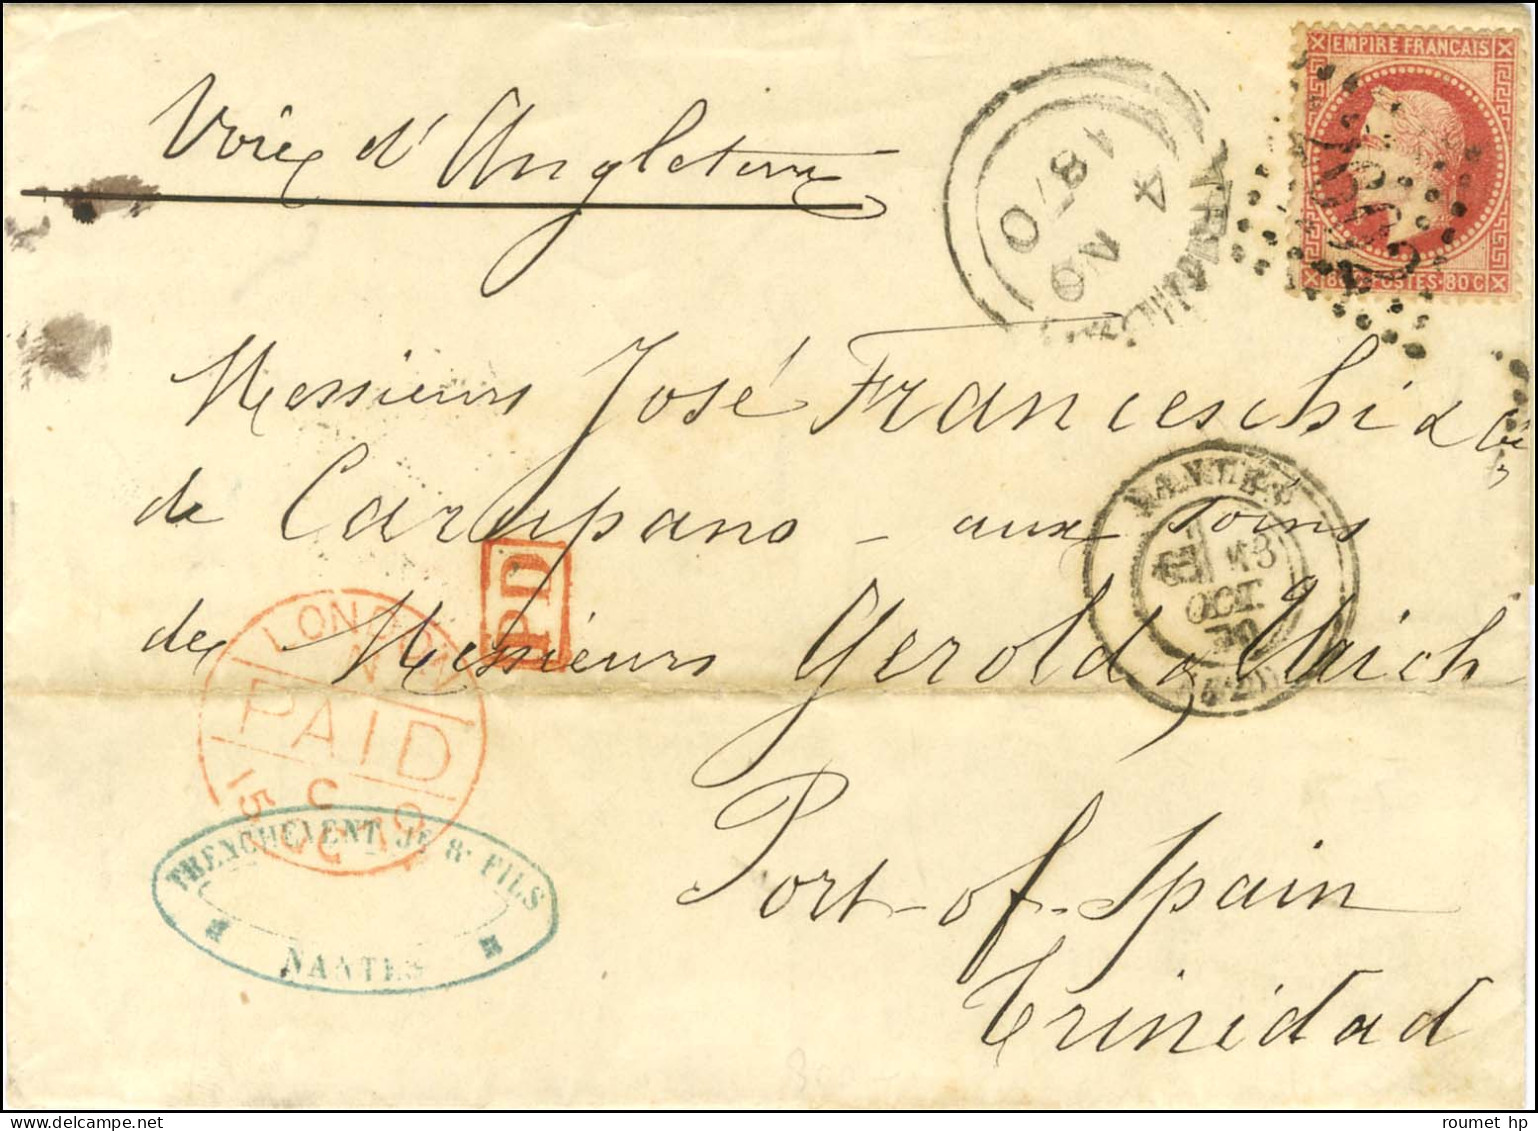 Voie d'Angleterre
4
NO
1870
EMPIRE FRANCAIS
80 C POSTES 80 C
2602
Messieurs José Franceschi & Cie
de Carupano - aux soins
de Messieurs Gerold & Urich
Port-of-Spain
Trinidad
PD
NANTES
13
OCT.
70
LONDON
N
PAID
C
15 OC 70
TRENCHEVENT Je & FILS
NANTES
roumet hp